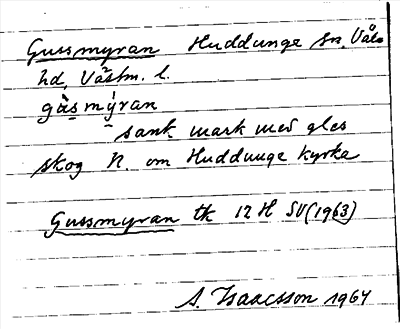 Gussmyran Huddunge sn, Våla
hd, Västm. l.
gùsmýran
sank mark med gles
skog N. om Huddunge kyrka
Gussmyran tk 12 H SV (1963)
A. Isaacsson 1964